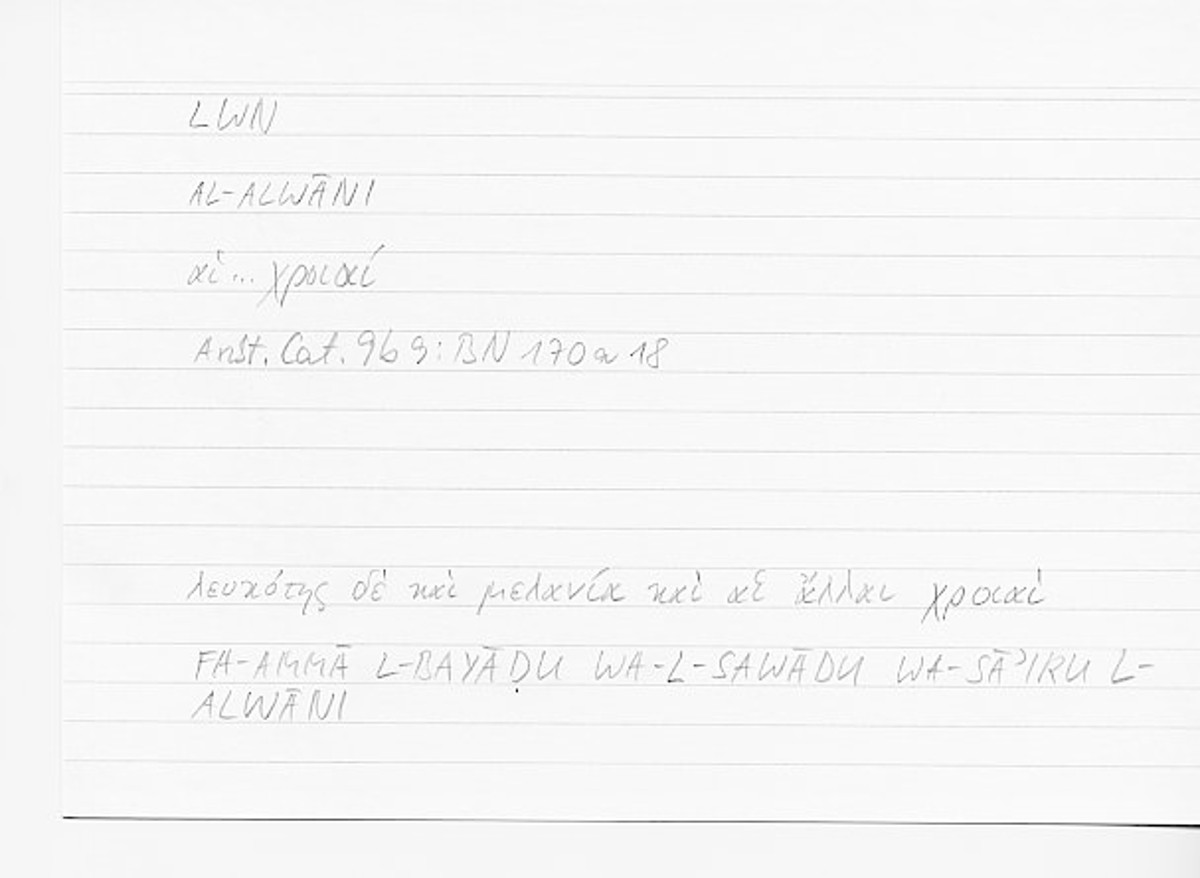 LWN
AL-ALWĀNI
αἱ... χροιαί
Arist. Cat. 9b9: BN 170a18
λευκότης δὲ καὶ μελανία καὶ αἱ ἄλλαι χροιαὶ
FA-AMMĀ L-BAYĀḌU WA-L-SAWĀDU WA-SĀʾIRU L-
ALWĀNI